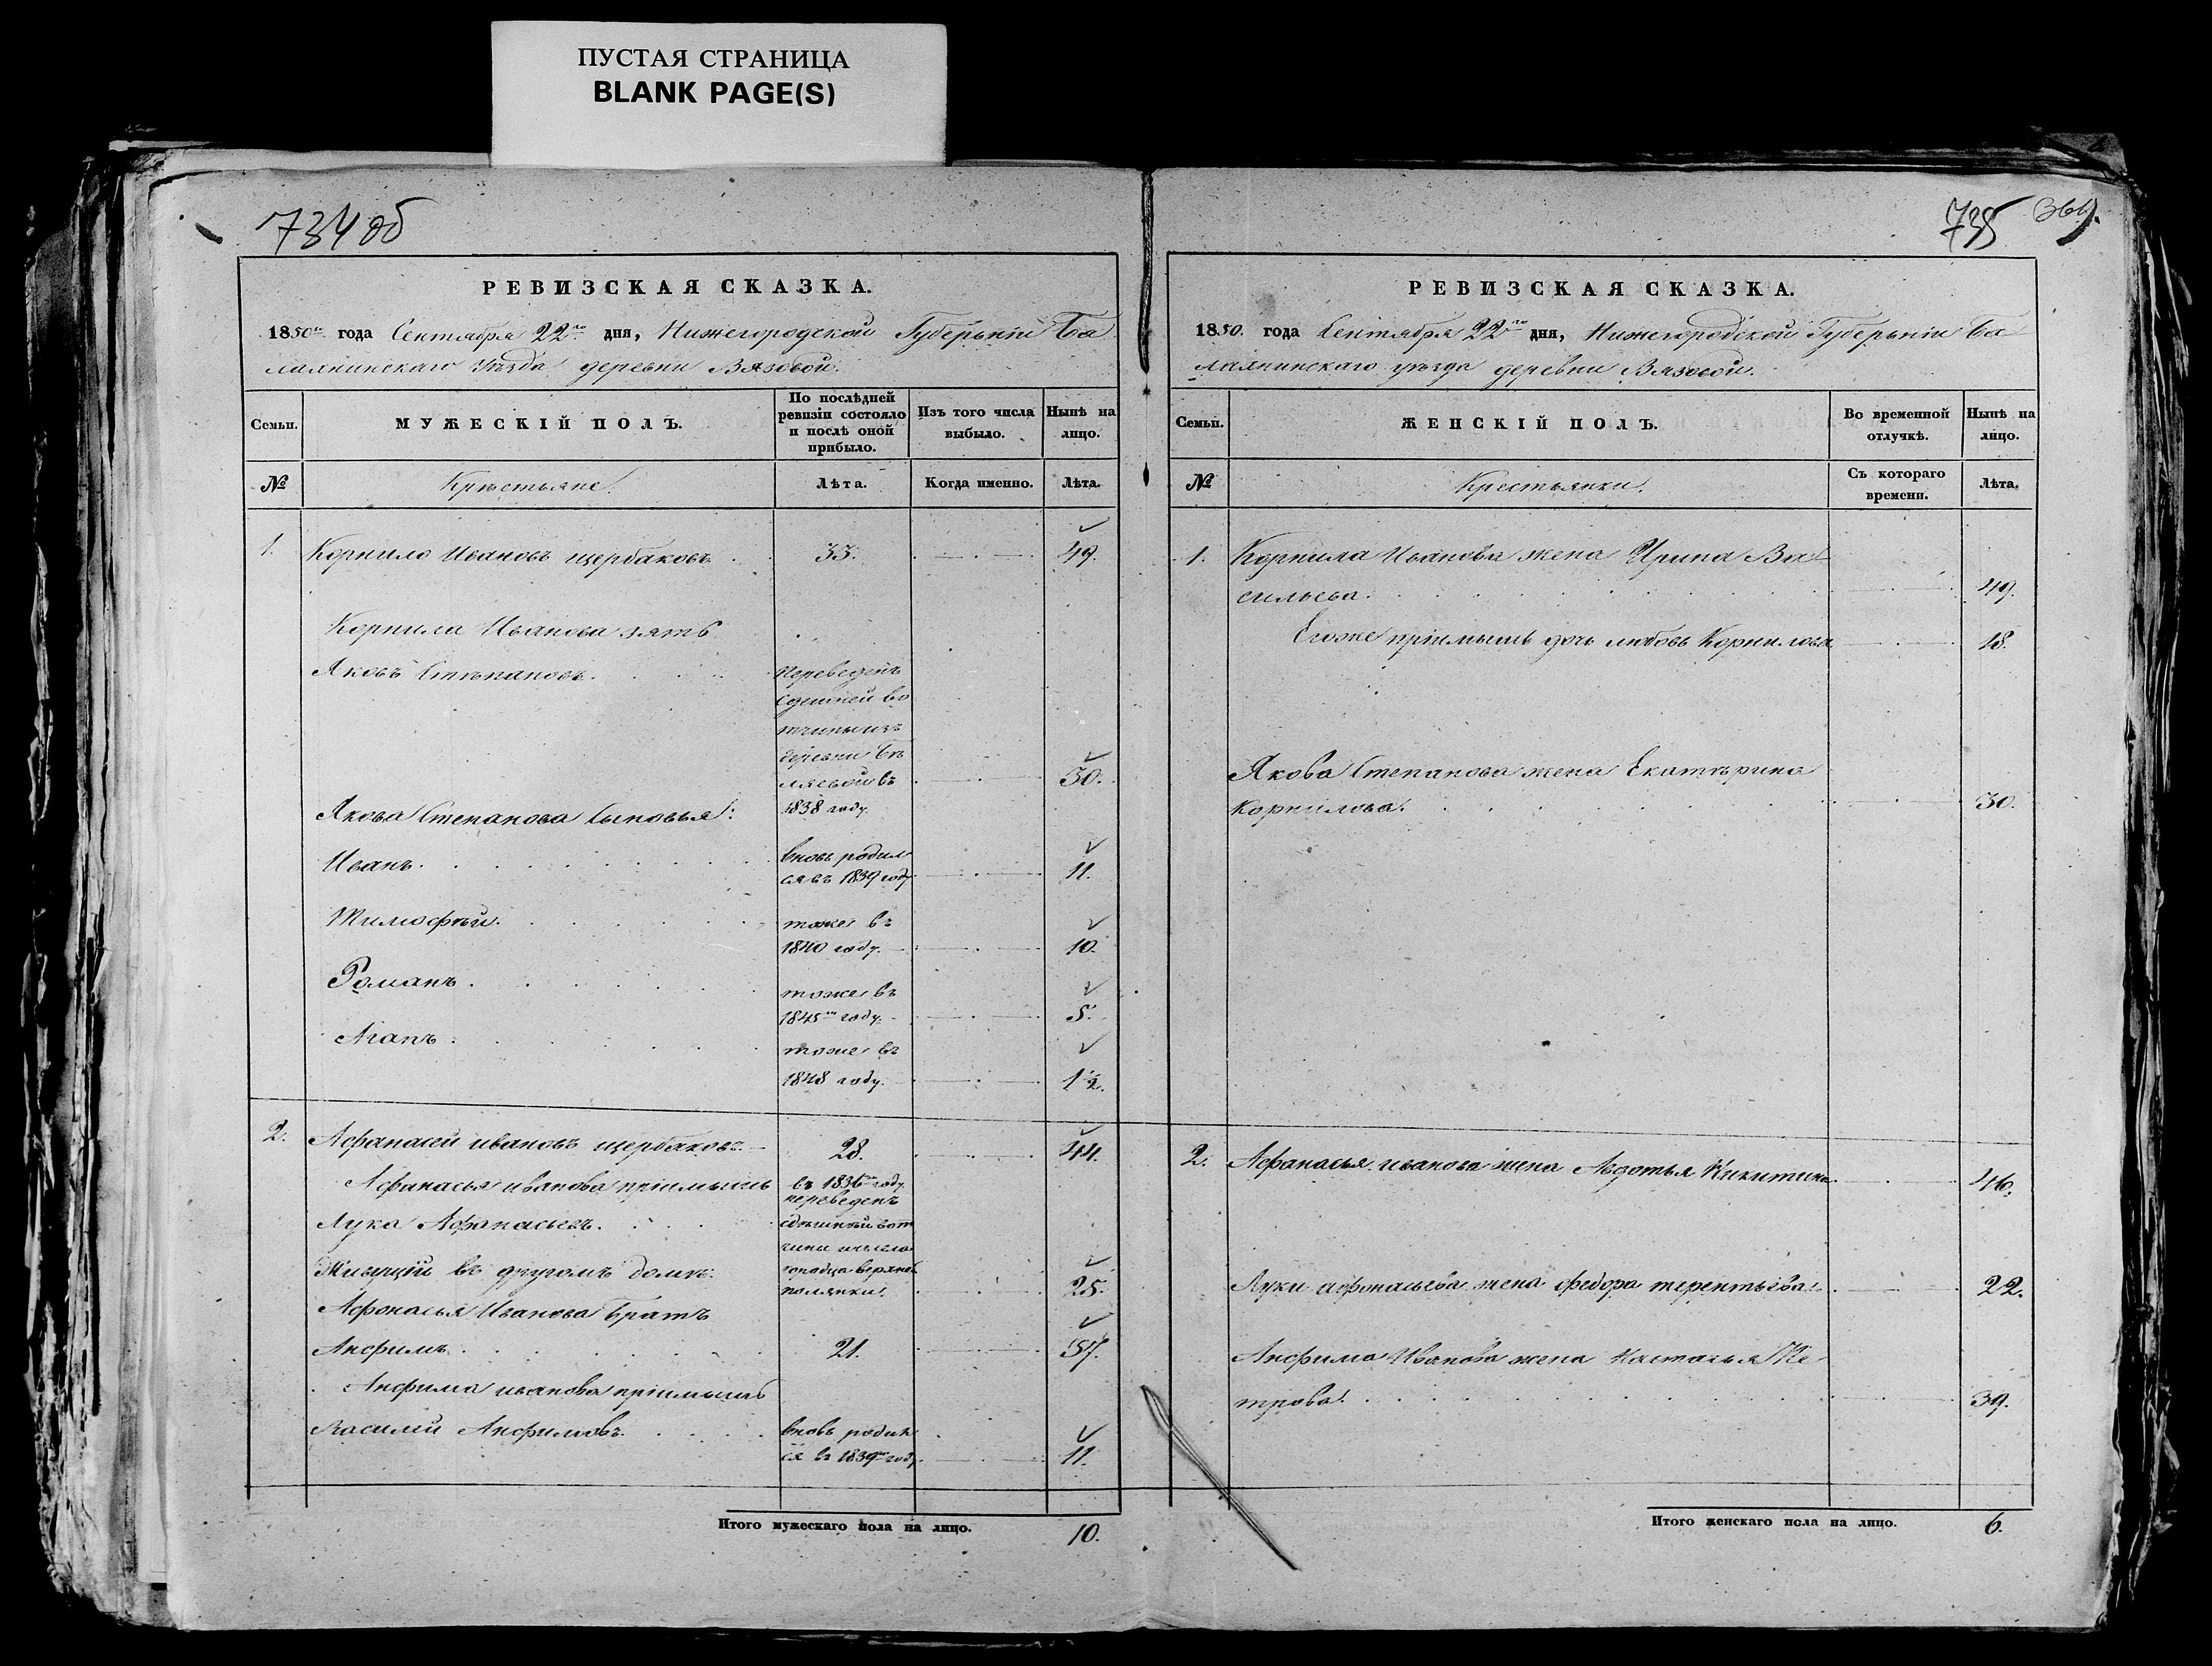 ПУСТАЯ СТРАНИЦА
BLANK PAGE(S)
734 об
РЕВИЗСКАЯ СКАЗКА.
1850го года Сентября 22го дня, Нижегородской Губернiи Ба
лахнинскаго Уѣзда деревни Вязовой.
Семьи.
МУЖЕСКIЙ ПОЛЪ.
По послѣдней
ревизiи состояло
и послѣ оной
прибыло.
Изъ того числа
выбыло.
Нынѣ на
лицо.
№
Крестьяне.
Лѣта.
Когда именно.
Лѣта.
1. Корнило Ивановъ щербаковъ 33. 49.
Корнила Иванова зять
Яковъ Степановъ. Переведенъ
сдешней во
тчины изъ
деревни
въ 30.
1838 году.
Якова Степанова Сыновья:
Иванъ. вновь родил
ся въ 1839 году 11.
Тимофѣй. тоже въ
1840 году. 10.
Романъ. тоже въ
1845м году. 5.
Агапъ. тоже въ
1848 году. 1½.
2. Афанасей ивановъ щербаковъ 28. 44.
Афанасья иванова прiемышь въ 1836м году
переведенъ
Лука Афанасьевъ. сдѣшнѣй вот
чины изъ села
Живущiй въ другомъ домѣ: городца верхней
полянки. 25.
Афонасья Иванова Братъ
Анфимъ. 21. 37.
Анфима иванова прiемышъ
Василiй Анфимовъ. вновь родил
ся въ 1839м году 11.
Итого мужескаго пола на лицо. 10.
735 369.
РЕВИЗСКАЯ СКАЗКА.
1850. года Сентября 22го дня, Нижегородской Губернiи Ба
лахнинскаго уѣзда деревни Вязовой.
Семьи.
ЖЕНСКIЙ ПОЛЪ.
Во временной
отлучкѣ.
Нынѣ на
лицо.
№
Крестьянки.
Съ котораго
времени.
Лѣта.
1. Корнила Иванова жена Ирина Ва
сильева. 49.
Егоже прiемышь дочь любовь Корнилова 18.
Якова Степанова жена Екатѣрина
Корнилова. 30.
2. Афанасья иванова жена Авдотья Никитина 46.
Луки афонасьева жена федора терентьѣва. 22.
Анфима Иванова жена Настасья Пе
трова. 39.
Итого женскаго пола на лицо. 6.